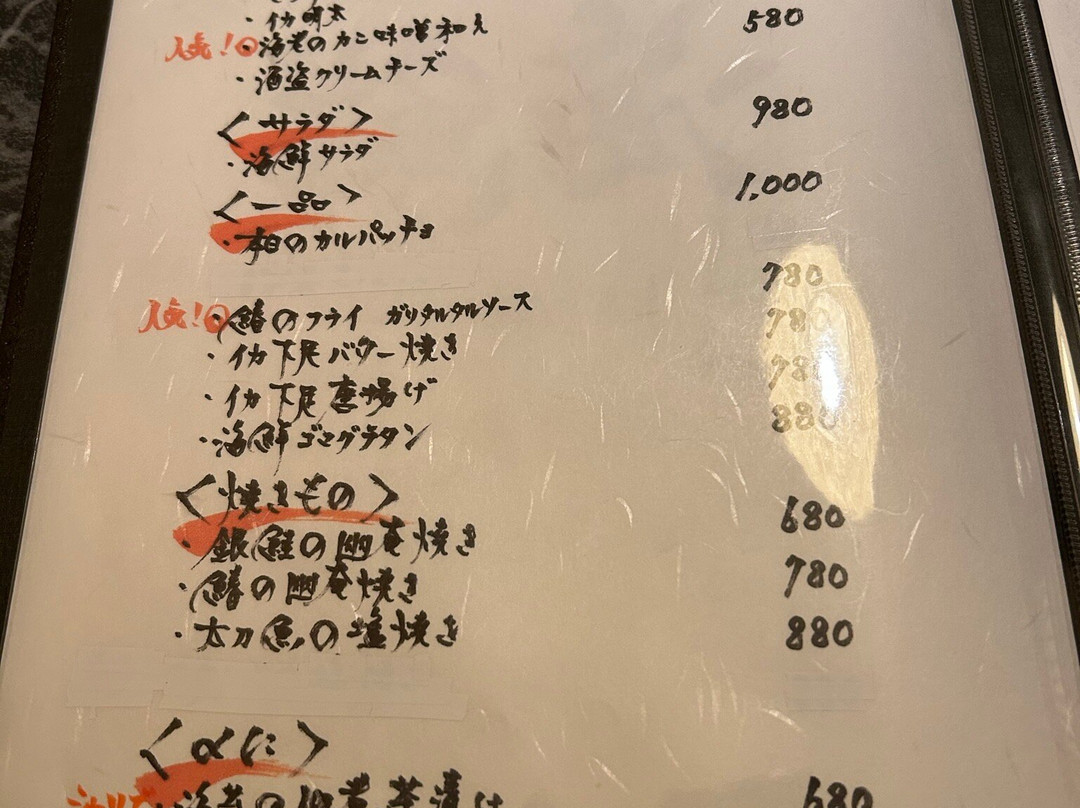 ・イカ明太
人気!◎・海老のカニ味噌和え 580
・酒盗クリームチーズ
〈サラダ〉
・海鮮サラダ 980
〈一品〉
・本日のカルパッチョ 1,000
人気!◎・鰆のフライ ガリタルタルソース 780
・イカ下足バター焼き 780
・イカ下足唐揚げ 780
・海鮮ゴマグラタン 880
〈焼きもの〉
・銀鮭の幽庵焼き 680
・鰆の幽庵焼き 780
・太刀魚の塩焼き 880
〈〆に〉
茶漬け 680